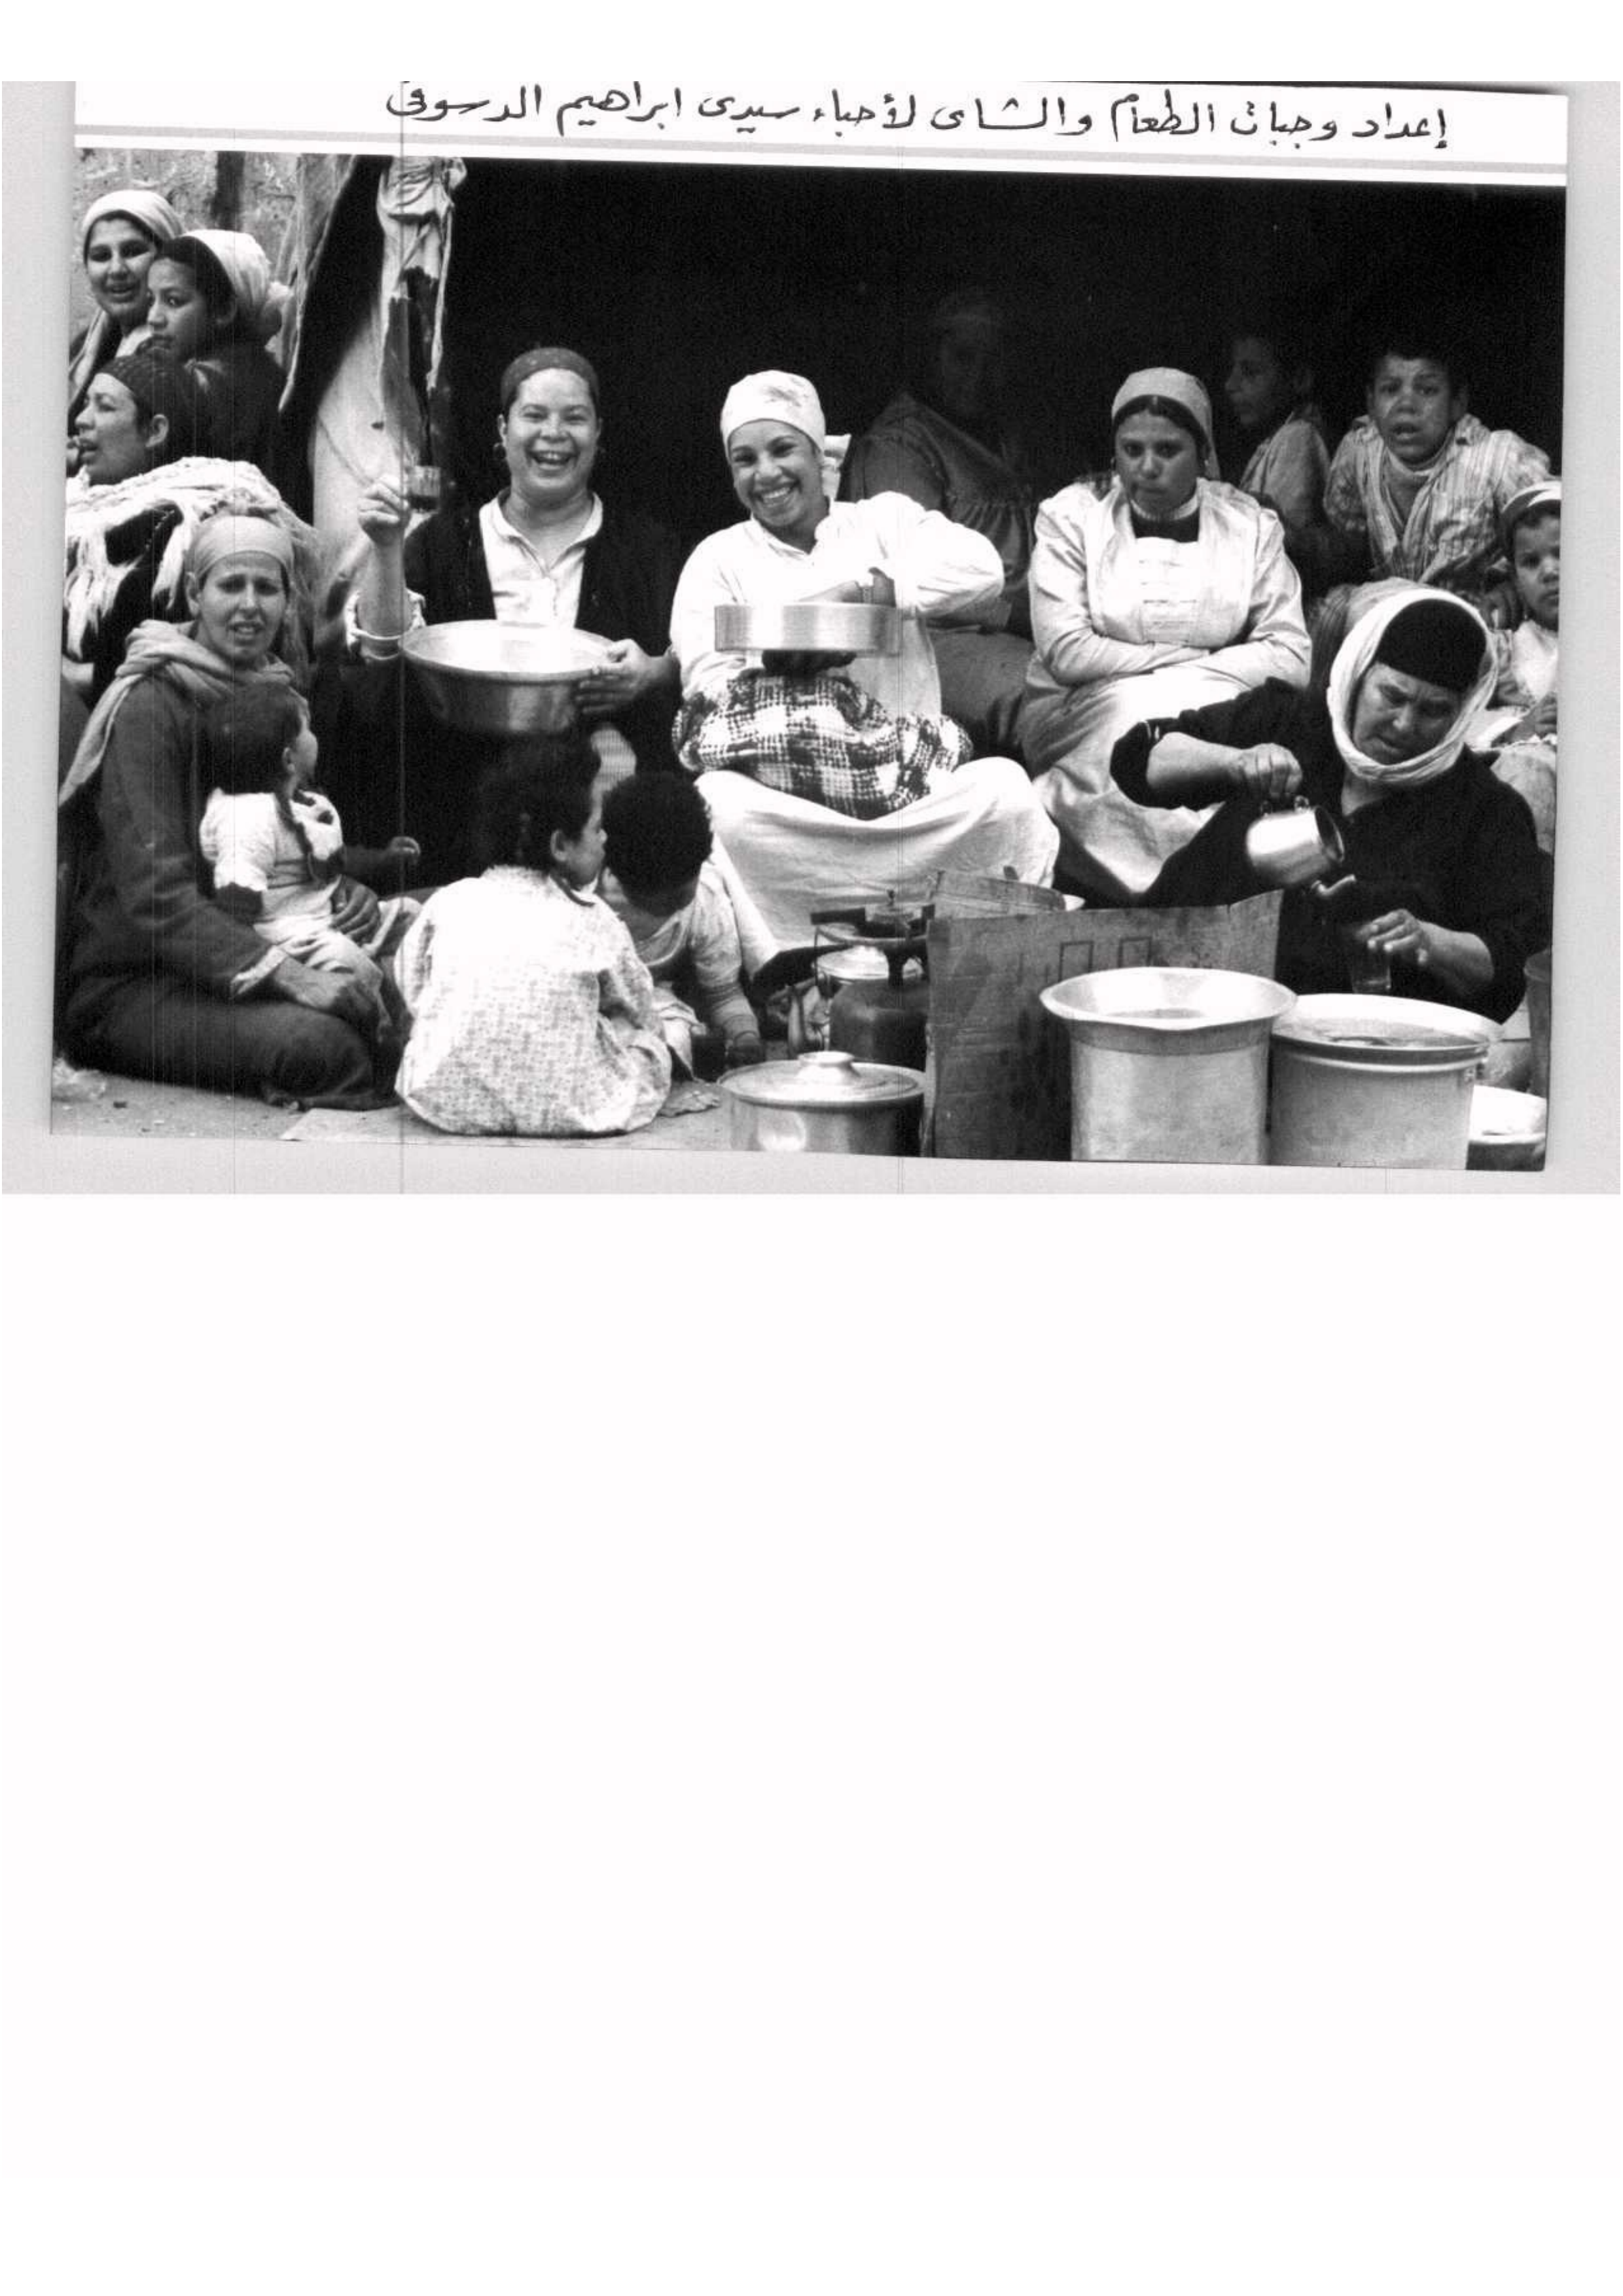 إعداد وجبات الطعام والشاى لأحباء سيدى ابراهيم الدسوقى